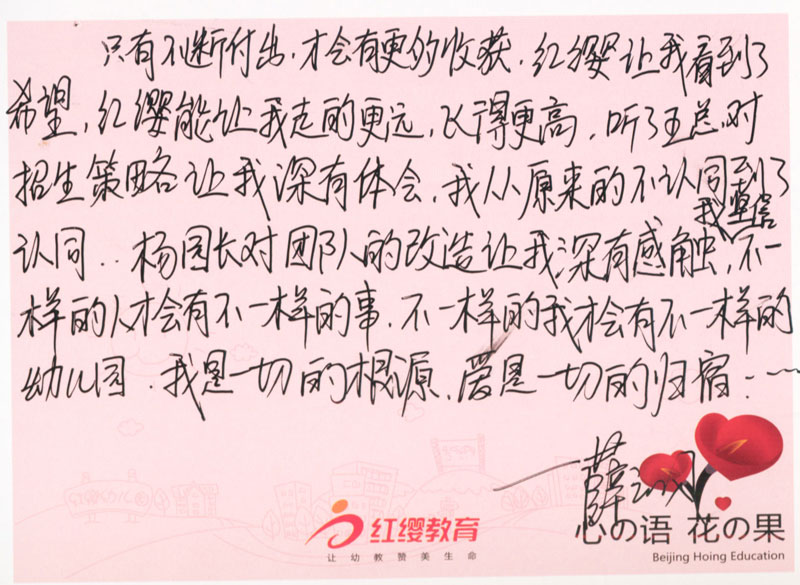 只有不断付出，才会有更多的收获，红缨让我看到了
希望，红缨能让我走的更远，飞得更高，听了王总对
招生策略让我深有体会，我从原来的不认同到了
我坚信
认同．．杨园长对团队的改造让我深有感触，不一
样的人才会有不一样的事．不一样的我才会有不一样的
幼儿园．我是一切的根源．爱是一切的归宿：一
一薛
红缨教育
让幼教赞美生命
心の语 花の果
Beijing Hoing Education